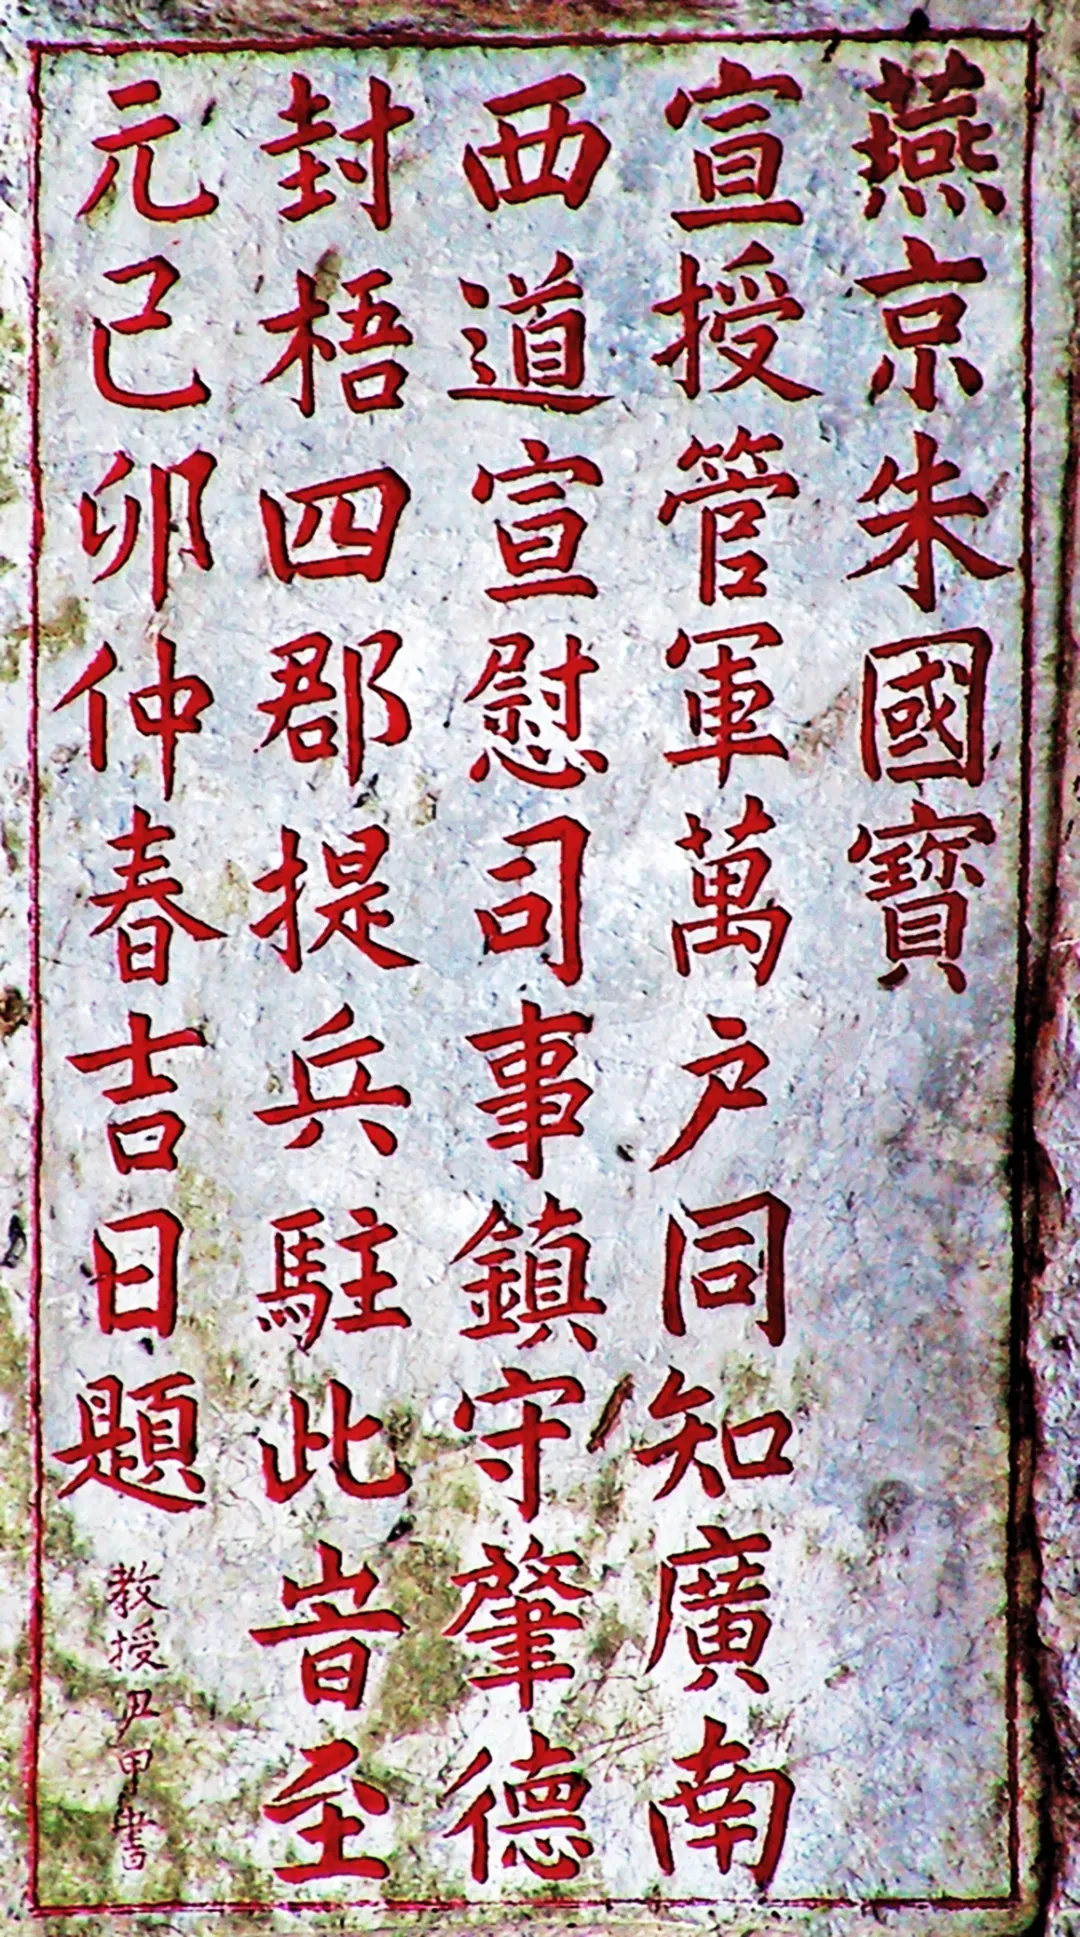 燕京朱國寳
宣授管軍萬户同知廣南
西道宣慰司事鎮守肇德
封梧四郡提兵駐此旹至
元己卯仲春吉日題
教授尹甲書